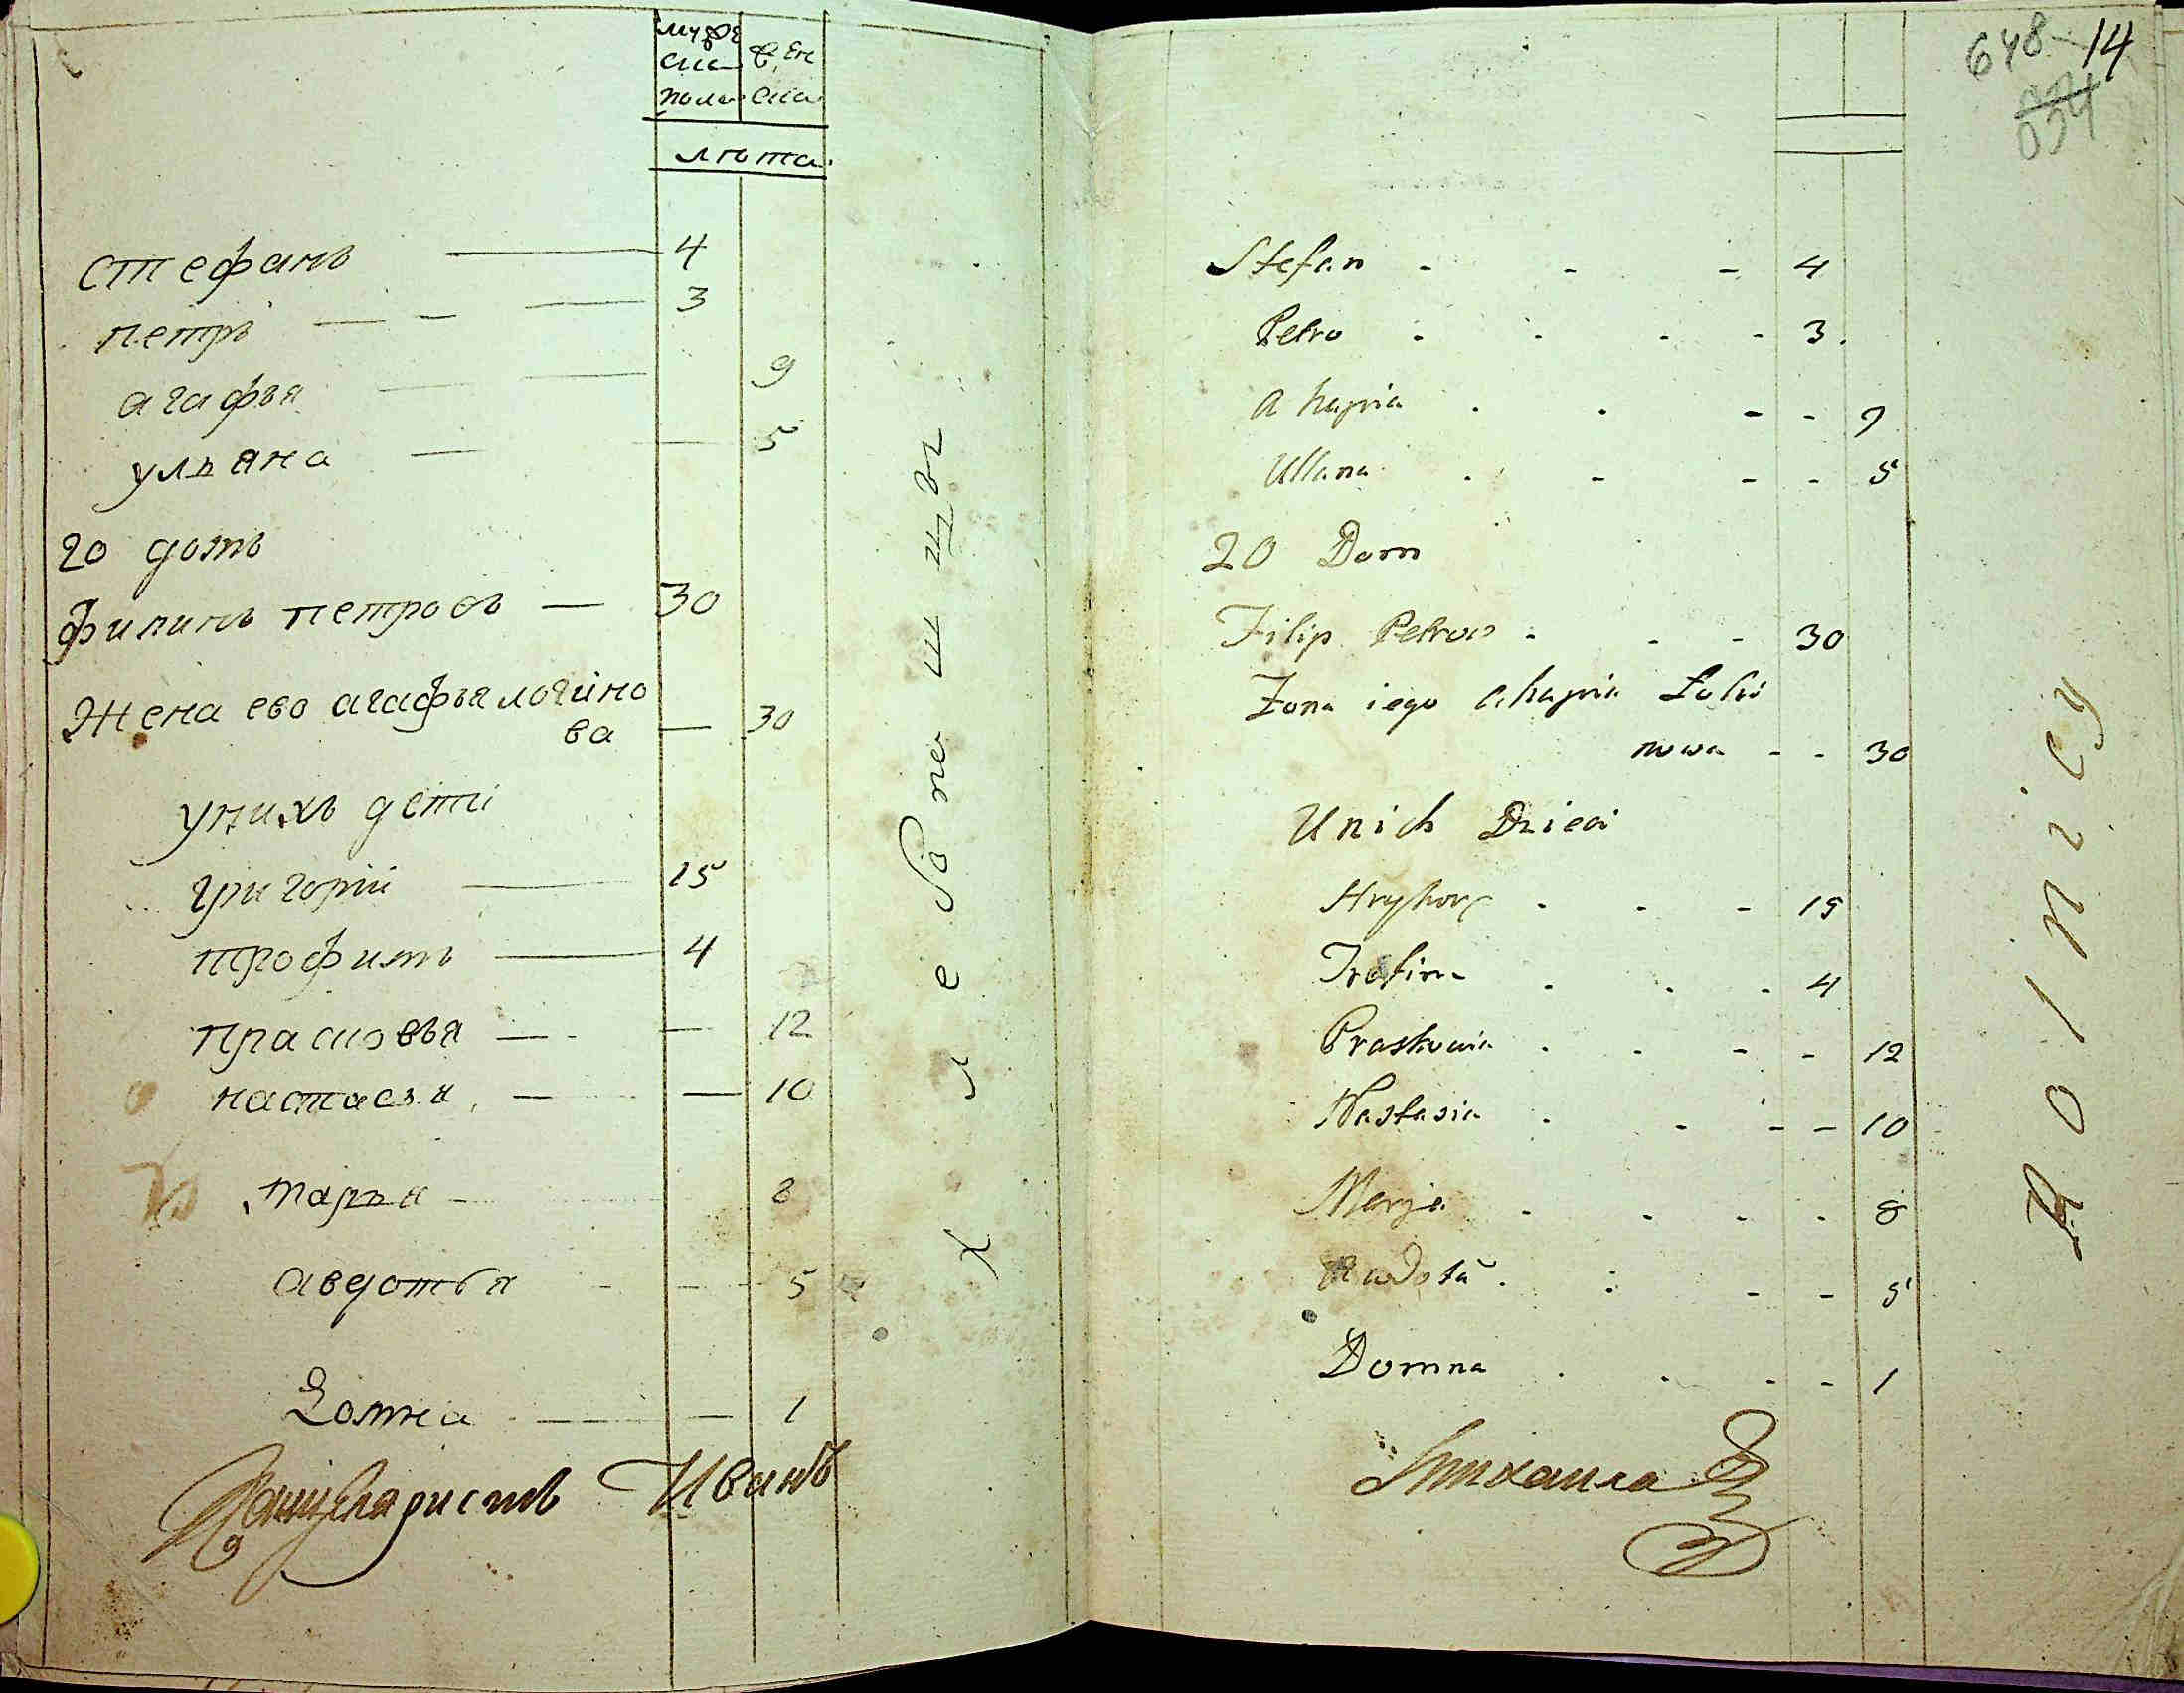 муже женс
ска
пола ска
лѣта
стефанъ — 4
петръ — — — 3
агафья — — 9
ульяна — — 5
20 домъ
филипъ петровъ — 30
Жена ево агафья логино
ва — 30
унихъ дети
григорий — 15
трофимъ — 4
прасковья — — 12
настасья — — 10
марья — 8
авдотья - - - 5
Домна — — 1
Канцеляристъ Иванъ
хлебопашцы
648 14
034
Stefan - - - 4
Petro - - - - 3.
Ahapia - - - - 9
Ullana - - - - 5
20 Dom
Filip Petrow - - - 30
Zona iego Ahapia Lohi
nowa - - 30
Unich Dzieci
Hryhory - - - 15
Trofim - - - 4
Praskowia - - - - 12
Nastasia - - - - 10
Marja - - - - 8
Awdotia - - - - 5
Domna - - - - 1
Михаила
Rolnicy